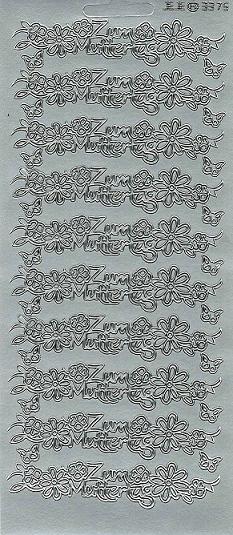 3375
Zum
Muttertag
Zum
Muttertag
Zum
Muttertag
Zum
Muttertag
Zum
Muttertag
Zum
Muttertag
Zum
Muttertag
Zum
Muttertag
Zum
Muttertag
Zum
Muttertag